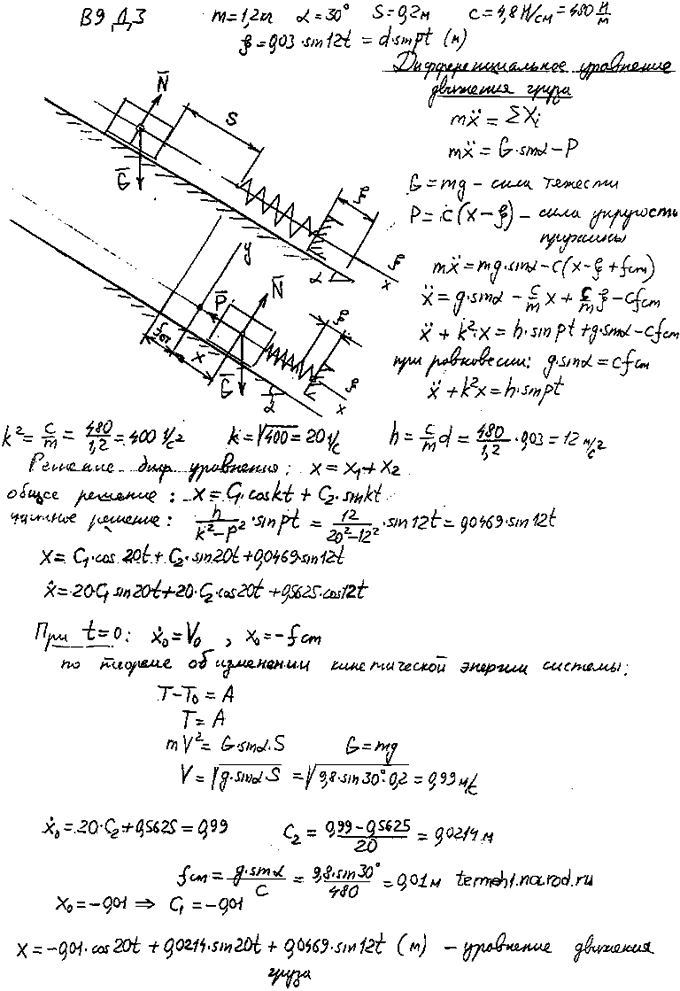 В9 Д3   m=1,2кг   α=30°   S=0,2м   c=4,8 Н/см=480 Н/м
ξ=0,03·sin12t = d·sinpt (м)
Дифференциальное уравнение
движения груза
mẍ = ΣXi
mẍ = G·sinα-P
G=mg - сила тяжести
P=c(x-ξ) - сила упругости
пружины
mẍ=mg·sinα-c(x-ξ+fст)
ẍ=g·sinα - c/m x + c/m ξ - cfст
ẍ + k²·x = h·sinpt+g·sinα-cfст
при равновесии: g·sinα=cfст
ẍ+k²x=h·sinpt
N̄ S Ḡ ξ ξ x α
y P̄ N̄ fст x Ḡ ξ ξ x α
k² = c/m = 480/1,2 = 400 1/с²   k=√400=20 1/с   h = c/m d = 480/1,2 ·0,03 = 12 м/с²
Решение диф. уравнения: x=x₁+x₂
общее решение: x=C₁·coskt + C₂·sinkt
частное решение: h/(k²-p²) ·sinpt = 12/(20²-12²) ·sin12t = 0,0469·sin12t
x = C₁·cos 20t + C₂·sin20t+0,0469·sin12t
ẋ=-20·C₁ sin20t+20·C₂·cos20t +0,5625·cos12t
При t=0: ẋ₀=V₀ , x₀=-fст
по теореме об изменении кинетической энергии системы:
T-T₀ = A
T = A
mV² = G·sinα·S   G=mg
V = √g·sinα·S = √9,8·sin30°·0,2 = 0,99 м/с
ẋ₀=20·C₂+0,5625=0,99   C₂ = (0,99-0,5625)/20 = 0,0214 м
fст = g·sinα/c = 9,8·sin30°/480 = 0,01м   termeh1.narod.ru
x₀=-0,01 ⇒ C₁=-0,01
x=-0,01·cos20t + 0,0214·sin20t + 0,0469·sin12t (м) - уравнение движения
груза